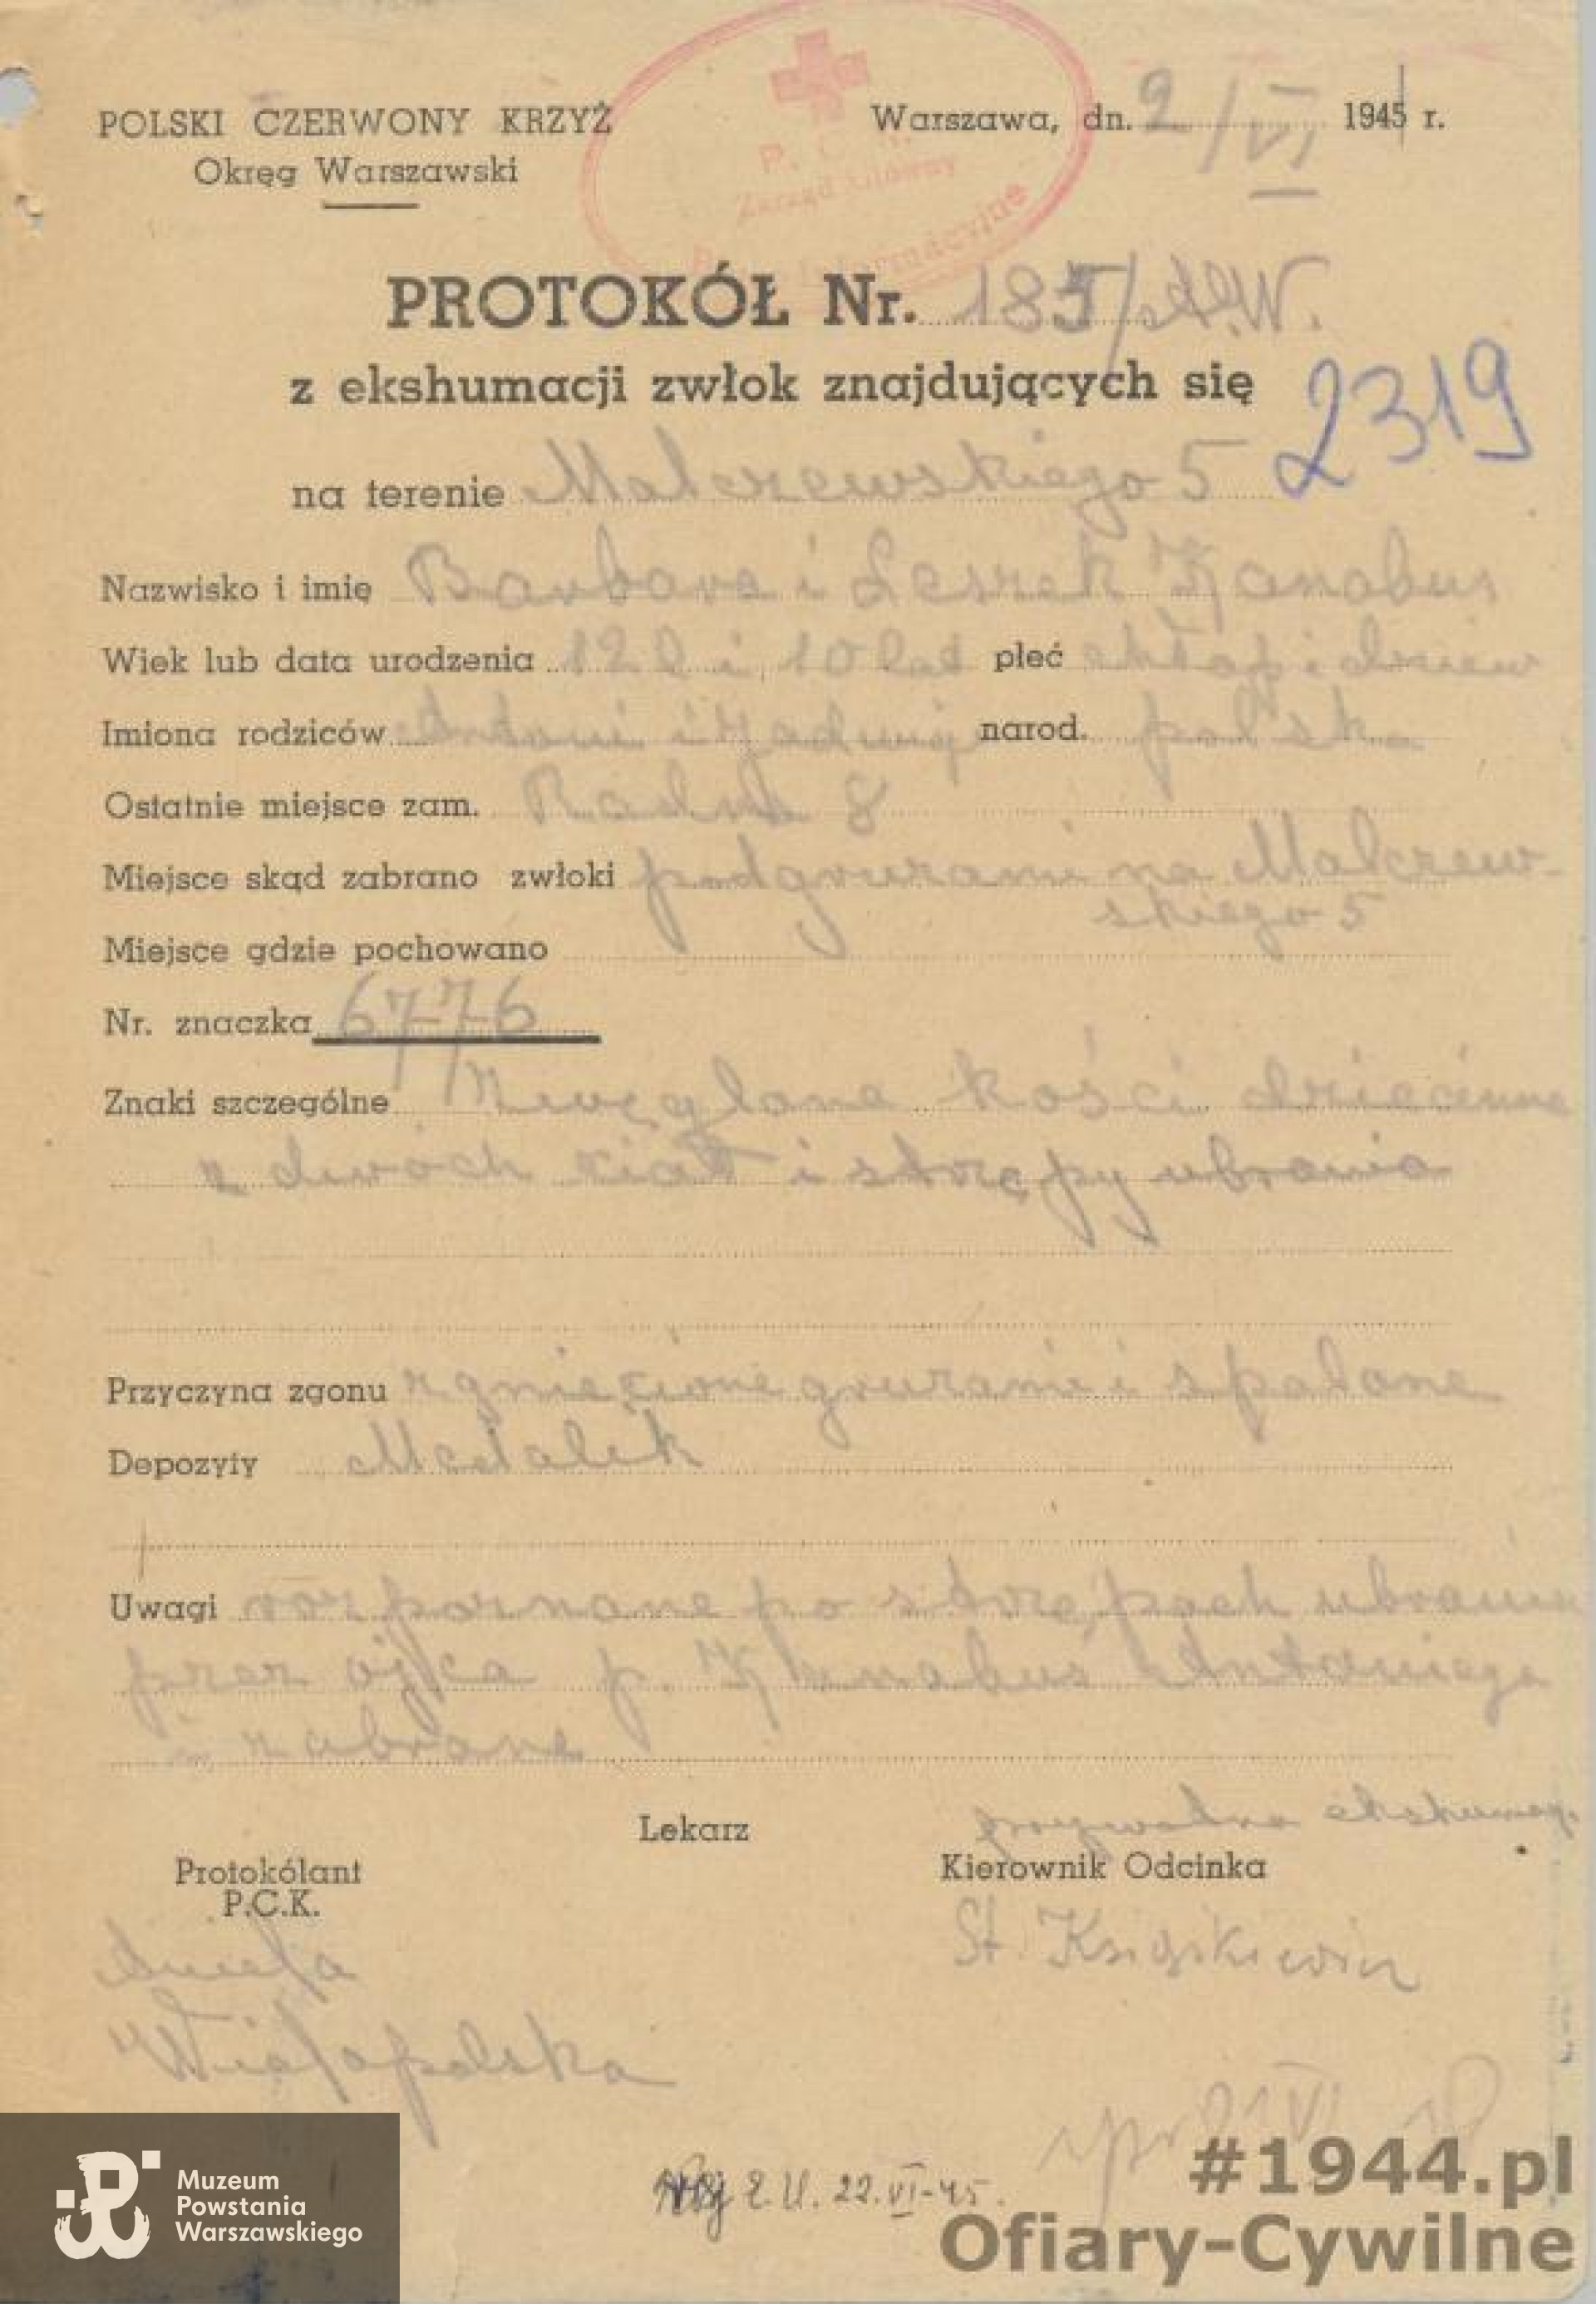 POLSKI CZERWONY KRZYŻ
Okręg Warszawski
Warszawa, dn. 2/VI 1945 r.
P. C. K.
Zarząd Główny
PROTOKÓŁ Nr. 185/
z ekshumacji zwłok znajdujących się
2319
na terenie Malczewskiego 5
Nazwisko i imię Barbara i Leszek Kanabus
Wiek lub data urodzenia 12 l i 10 lat płeć chłop i dziew
Imiona rodziców Antoni i Jadwiga narod. polska
Ostatnie miejsce zam. Radna 8
Miejsce skąd zabrano zwłoki pod gruzami na Malczew-
skiego 5
Miejsce gdzie pochowano
Nr. znaczka 6776
Znaki szczególne Zwęglone kości dziecinne
z dwóch ciał i strzępy ubrania
Przyczyna zgonu zgniecione gruzami i spalone
Depozyty Medalik
Uwagi rozpoznane po strzępach ubrania
przez ojca p. Kanabus Antoniego
i zabrane
prywatna ekshumacj.
Lekarz
Protokólant
P.C.K.
Kierownik Odcinka
Aniela
Wielopolska
St. Książkiewicz
22.VI-45.
Muzeum
Powstania
Warszawskiego
#1944.pl
Ofiary-Cywilne